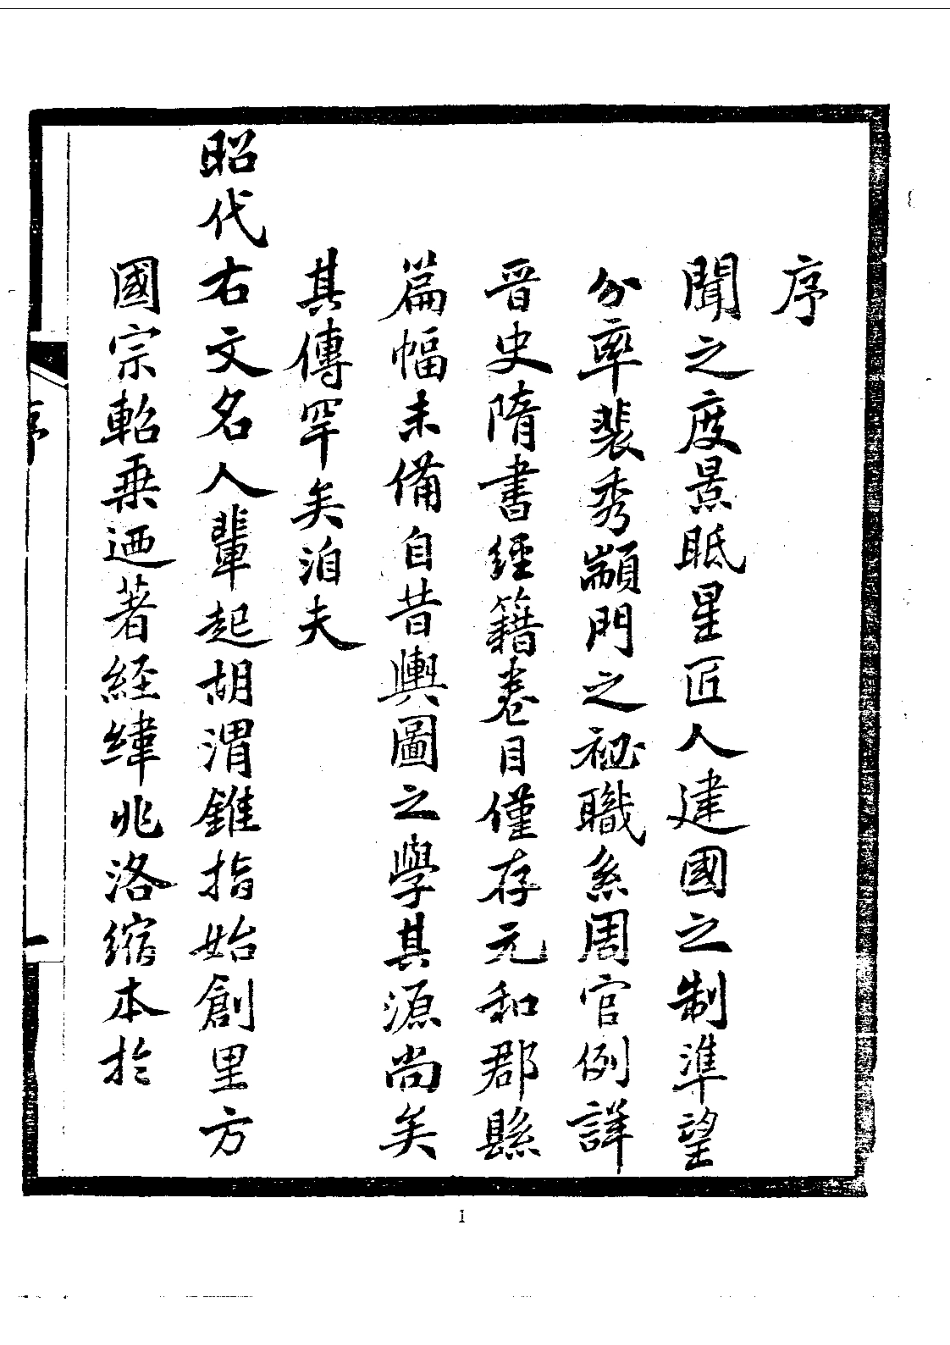 序
聞之度景眡星匠人建國之制準望
分率裴秀顓門之祕職系周官例詳
晉史隋書經籍卷目僅存元和郡縣
篇幅未備自昔輿圖之學其源尚矣
其傳罕矣洎夫
昭代右文名人輩起胡渭錐指始創里方
國宗軺乗迺著經緯兆洛縮本於
序
一
1